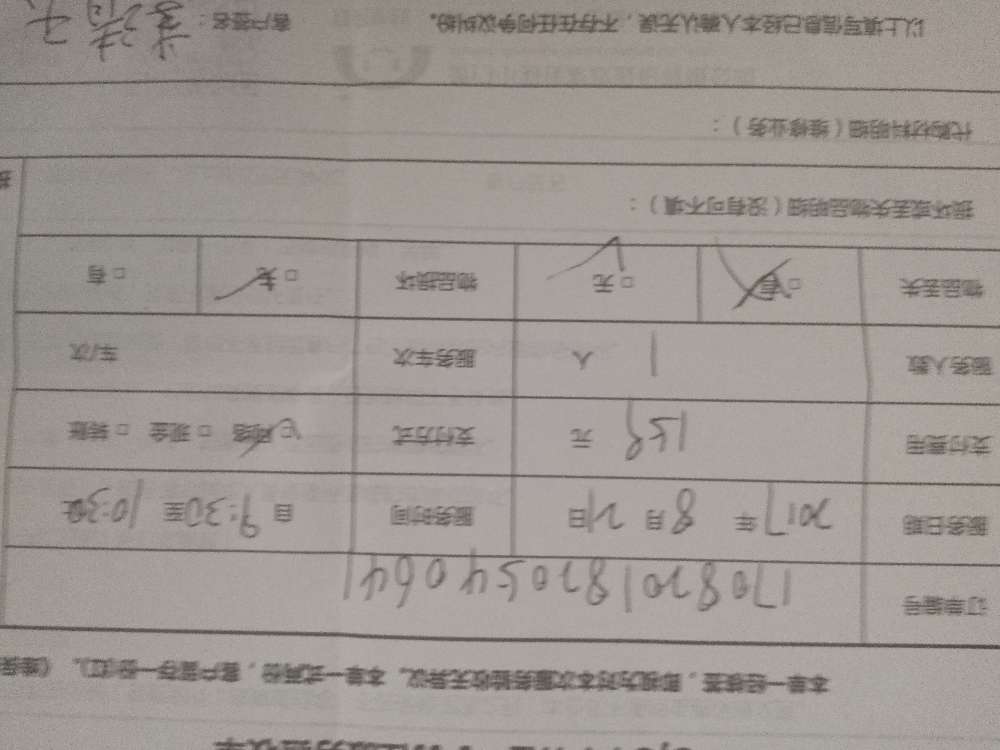 本单一经签签，即视为对本次服务验收无异议。本单一式两份，客户留存一份(红)。
订单编号 170820187054064
服务日期 2017年 8月21日 服务时间 自9:30至10:30
支付费用 159元 支付方式 □网络 □现金 □转账
服务人数 1人 服务车次 车/次
物品丢失 □有 □无 物品损坏 □无 □有
损坏或丢失物品明细（没有可不填）：
代购材料明细（维修业务）：
以上填写信息已经本人确认无误，不存在任何争议纠纷。 客户签名：